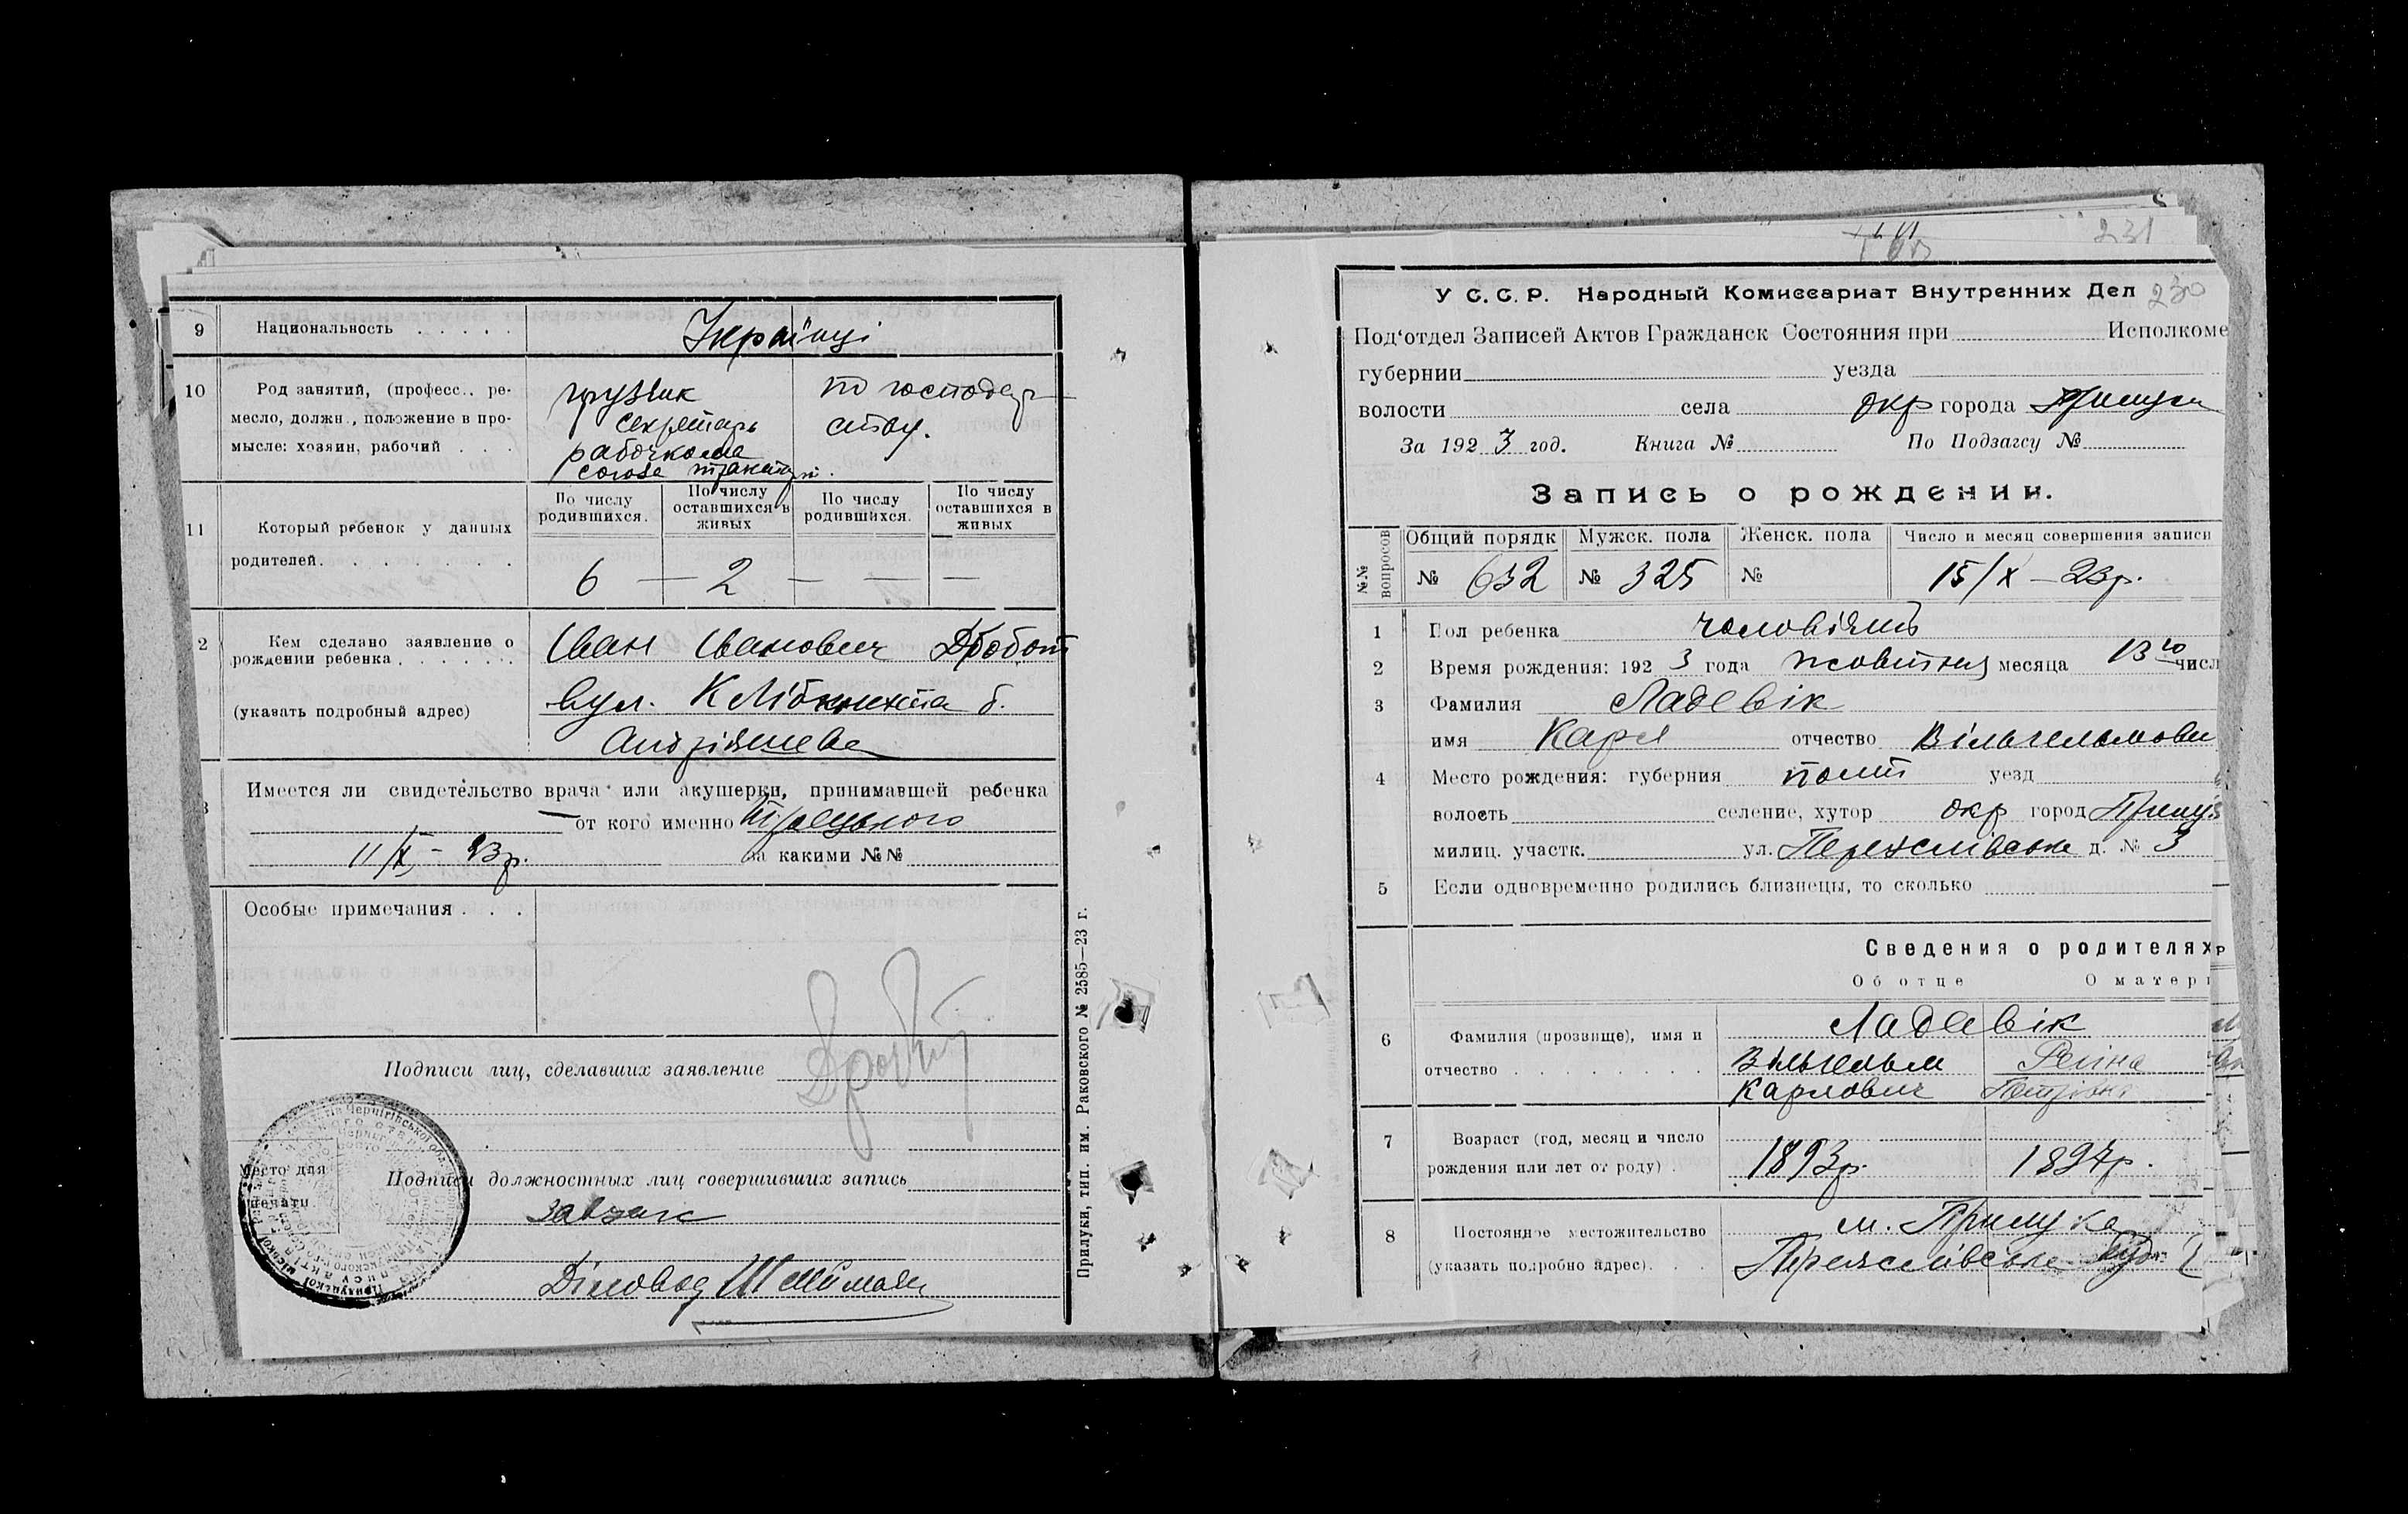 9 Национальность . . . . . Українці
10 Род занятий, (професс., ре-
месло, должн., положение в про-
мысле: хозяин, рабочий . . .
грузчик
секретарь
рабочкома
союза
по господар-
ству.
11 Который ребенок у данных
родителей. . . . . . . .
По числу родившихся.
По числу оставшихся в живых
По числу родившихся.
По числу оставшихся в живых
6 — 2 — — —
2 Кем сделано заявление о
рождении ребенка . . . . . .
(указать подробный адрес)
Іван Іванович Дробот
вул. К Лібкнехта б.
Андріяшева
3 Имеется ли свидетельство врача или акушерки, принимавшей ребенка
— от кого именно
11/X – 23р. за какими №№
Особые примечания . . .
Подписи лиц, сделавших заявление
Место для
печати.
Подписи должностных лиц совершивших запись
Завзагс
Діловод
Прилуки, тип. им. Раковского № 2585—23 г.
231
У С. С. Р. Народный Комиссариат Внутренних Дел 230
Под'отдел Записей Актов Гражданск Состояния при Исполкоме
губернии уезда
волости села окр города Прилуки
За 1923 год. Книга № По Подзагсу №
Запись о рождении.
№№ вопросов
Общий порядк Мужск. пола Женск. пола Число и месяц совершения записи
№ 632 № 325 № 15/X – 23р.
1 Пол ребенка
2 Время рождения: 1923 года жовтня месяца 13го числ
3 Фамилия Ладевік
имя Карл отчество Вільгельмови
4 Место рождения: губерния полт уезд
волость селение, хутор окр город Прилук
милиц. участк. ул. Переяслівська д. № 3
5 Если одновременно родились близнецы, то сколько
Сведения о родителях
Об отце О матери
6 Фамилия (прозвище), имя и
отчество . . . . . . . .
Ладевік
Вільгельм
Карлович
Петрівна
7 Возраст (год, месяц и число
рождения или лет от роду) .
1893р. 1897р.
8 Постоянное местожительство
(указать подробно адрес). . .
м. Прилука